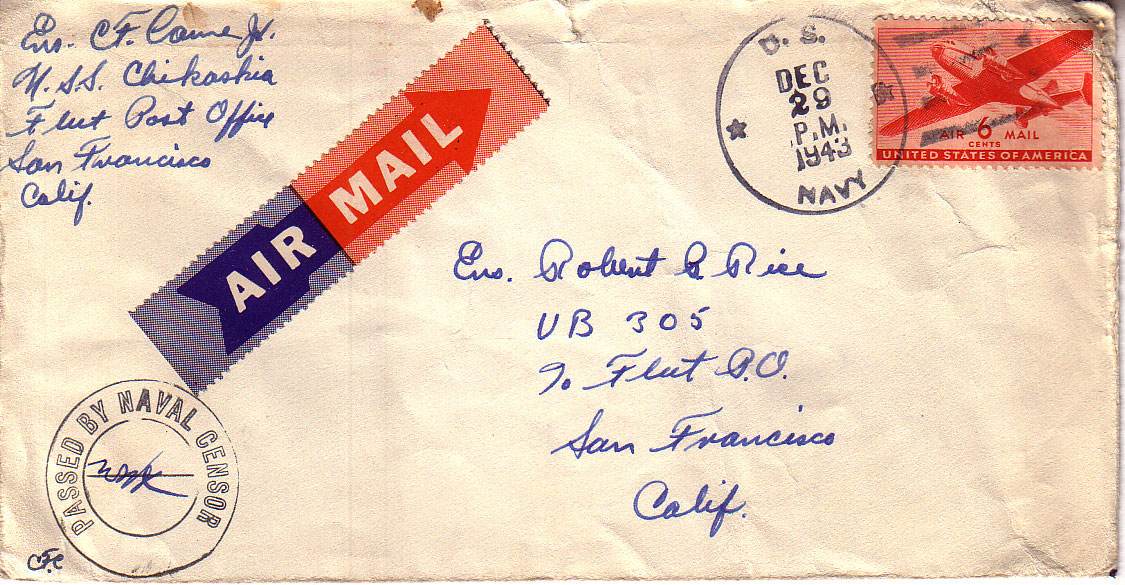 Ens. C.F. Came Jr.
U.S.S. Chikaskia
Fleet Post Office
San Francisco
Calif.
AIR MAIL
U. S.
DEC
29
P.M.
1943
NAVY
AIR 6 MAIL
CENTS
UNITED STATES OF AMERICA
Ens. Robert G Rice
VB 305
℅ Fleet P.O.
San Francisco
Calif.
PASSED BY NAVAL CENSOR
CFC